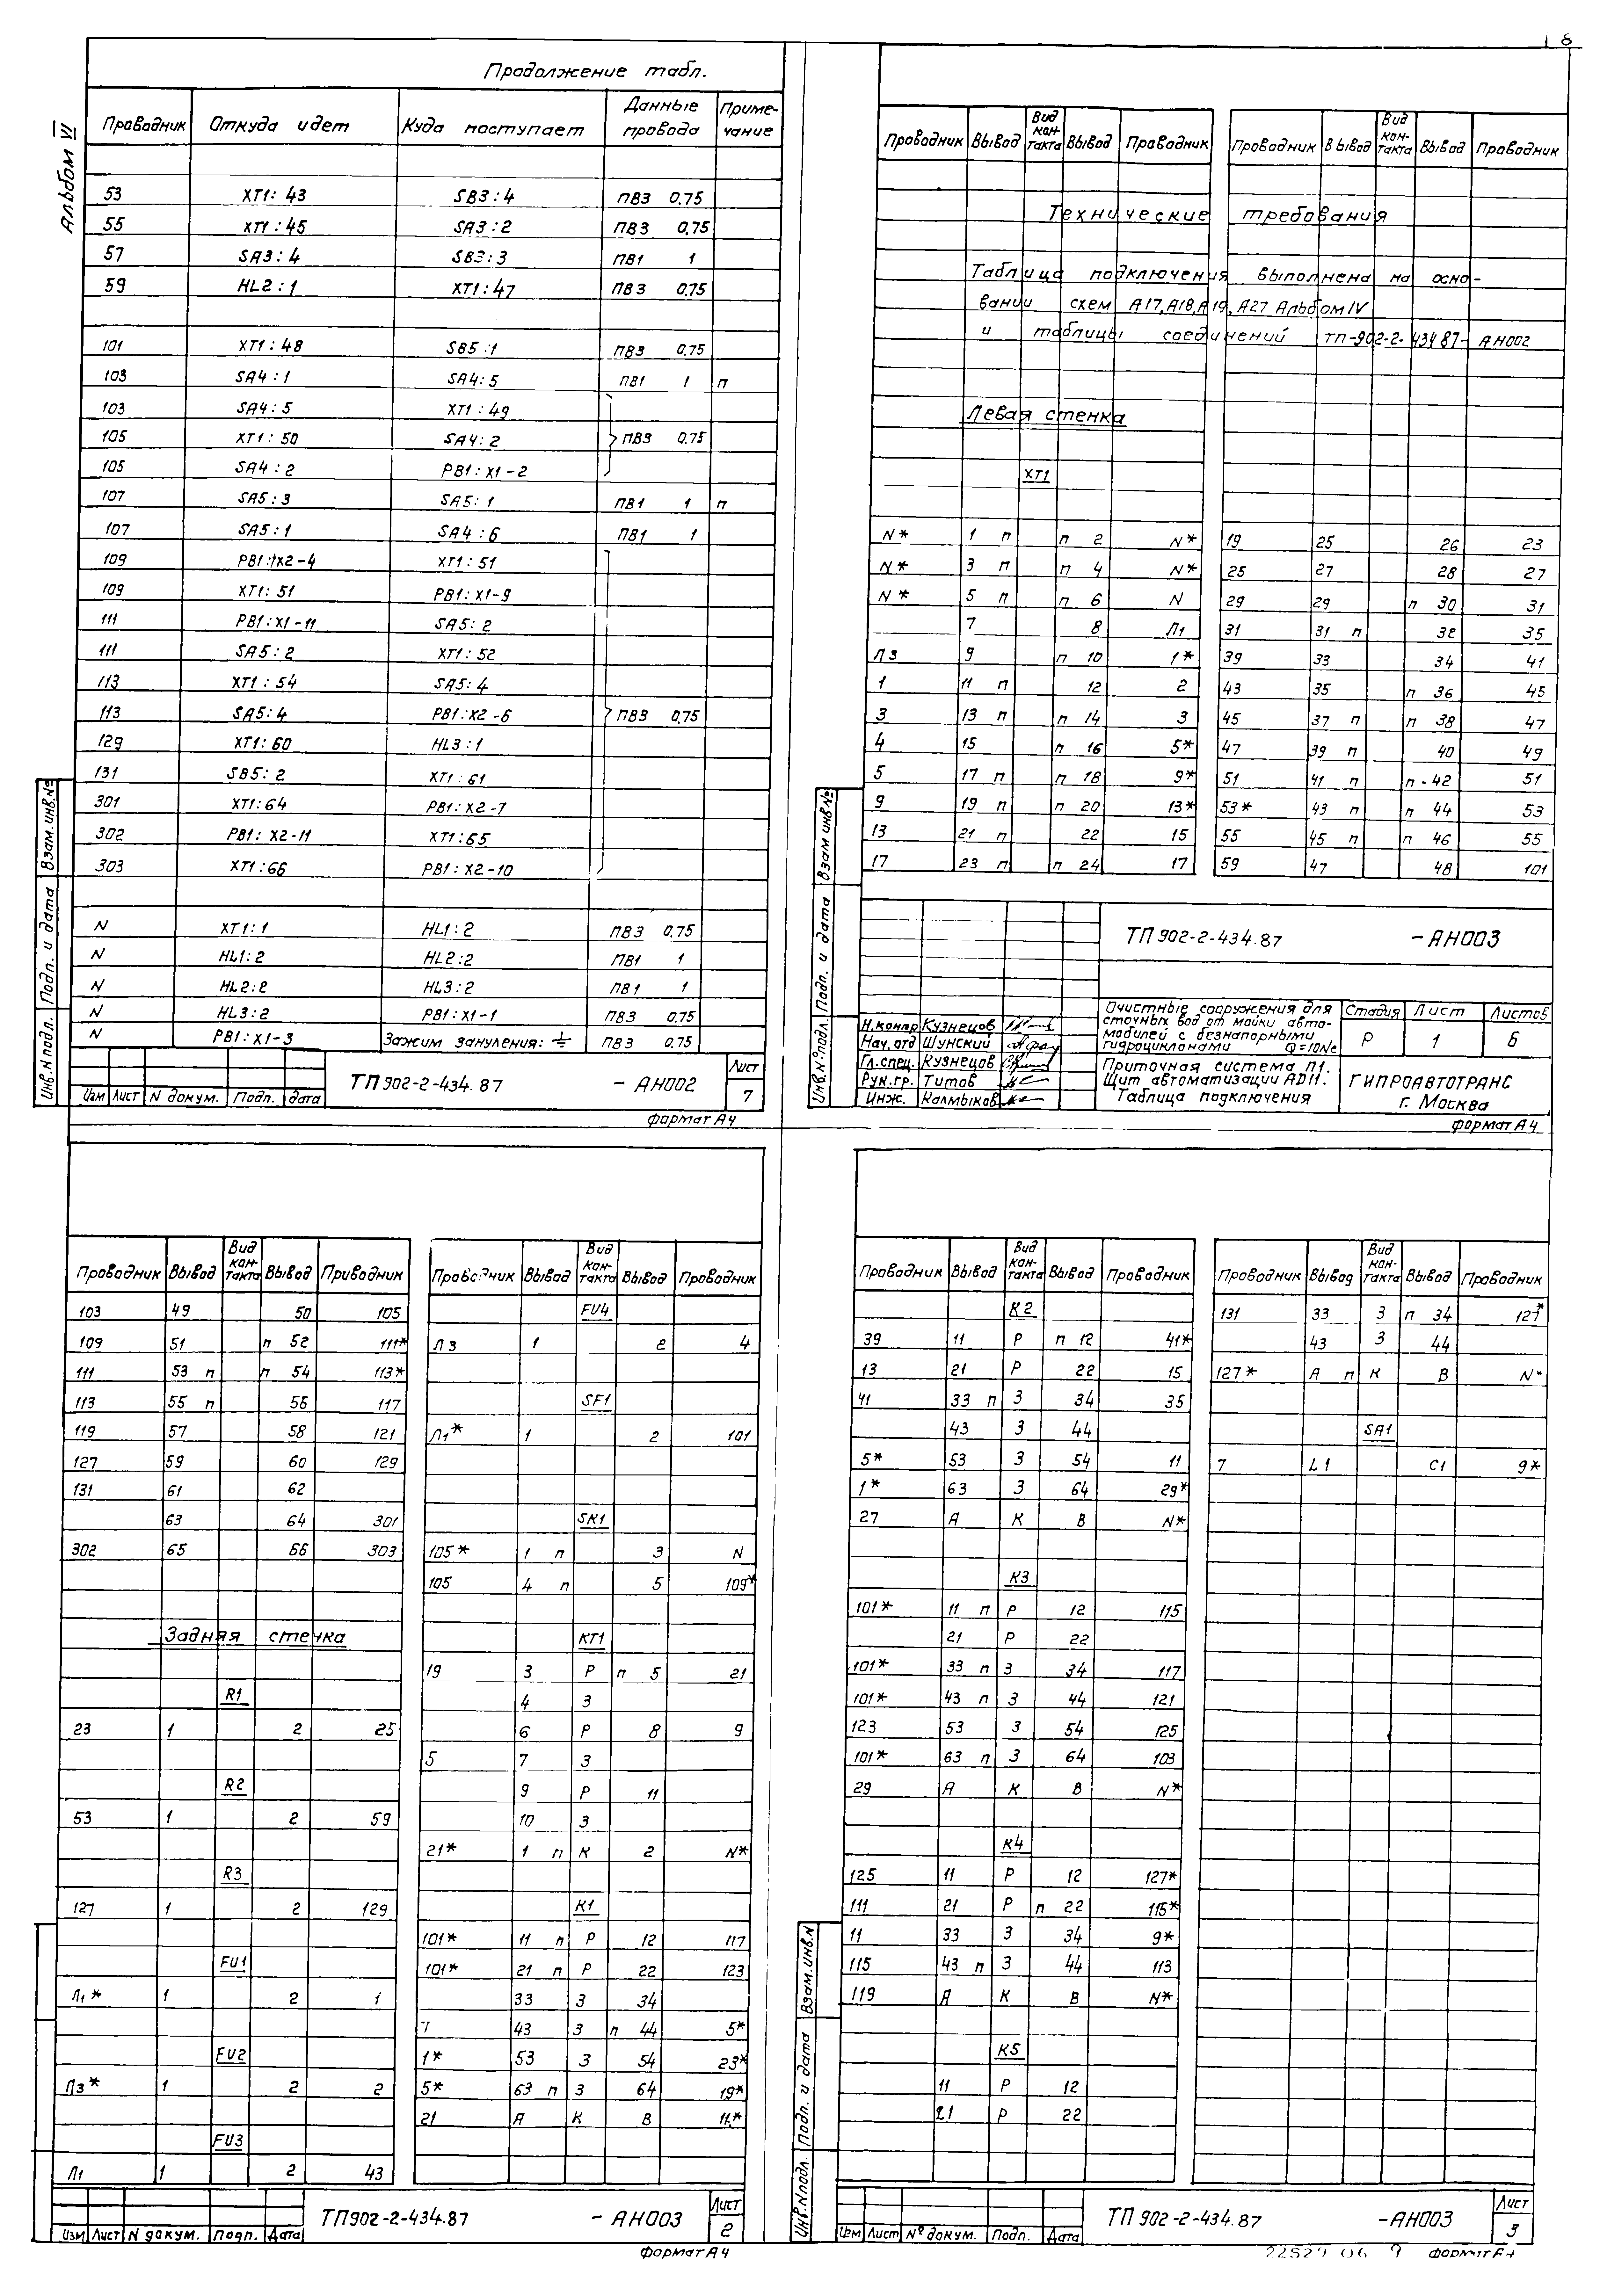 18
Альбом VI
Продолжение табл.
Проводник Откуда идет Куда поступает Данные провода Примечание
53 XT1:43 SB3:4 ПВ3 0,75
55 XT1:45 SA3:2 ПВ3 0,75
57 SA3:4 SB3:3 ПВ1 1
59 HL2:1 XT1:47 ПВ3 0,75
101 XT1:48 SB5:1 ПВ3 0,75
103 SA4:1 SA4:5 ПВ1 1 п
103 SA4:5 XT1:49
105 XT1:50 SA4:2 ПВ3 0,75
105 SA4:2 PB1:X1-2
107 SA5:3 SA5:1 ПВ1 1 п
107 SA5:1 SA4:6 ПВ1 1
109 PB1:X2-4 XT1:51
109 XT1:51 PB1:X1-9
111 PB1:X1-11 SA5:2
111 SA5:2 XT1:52
113 XT1:54 SA5:4
113 SA5:4 PB1:X2-6 ПВ3 0,75
129 XT1:60 HL3:1
131 SB5:2 XT1:61
301 XT1:64 PB1:X2-7
302 PB1:X2-11 XT1:65
303 XT1:66 PB1:X2-10
N XT1:1 HL1:2 ПВ3 0,75
N HL1:2 HL2:2 ПВ1 1
N HL2:2 HL3:2 ПВ1 1
N HL3:2 PB1:X1-1 ПВ3 0,75
N PB1:X1-3 Зажим зануления: ⏚ ПВ3 0,75
Взам. инв.№
Подп. и дата
Инв.N подл.
Изм Лист N докум. Подп. Дата
ТП 902-2-434.87 -АН002
Лист
7
формат А4
Проводник Вывод Вид контакта Вывод Проводник
Проводник Вывод Вид контакта Вывод Проводник
Технические требования
Таблица подключения выполнена на осно-
вании схем А17, А18, А19, А27 Альбом IV
и таблицы соединений ТП-902-2-434.87-АН002
Левая стенка
XT1
N* 1 п п 2 N*
N* 3 п п 4 N*
N* 5 п п 6 N
7 8 Л1
Л3 9 п 10 1*
1 11 п 12 2
3 13 п п 14 3
4 15 п 16 5*
5 17 п п 18 9*
9 19 п п 20 13*
13 21 п 22 15
17 23 п п 24 17
19 25 26 23
25 27 28 27
29 29 п 30 31
31 31 п 32 35
39 33 34 41
43 35 п 36 45
45 37 п п 38 47
47 39 п 40 49
51 41 п п-42 51
53* 43 п п 44 53
55 45 п п 46 55
59 47 48 101
Взам инв№
Подп. и дата
Инв.N°подл.
ТП 902-2-434.87 -АН003
Н.контр Кузнецов
Нач.отд Шунский
Гл.спец. Кузнецов
Рук.гр. Титов
Инж. Калмыков
Очистные сооружения для
сточных вод от мойки авто-
мобилей с безнапорными
гидроциклонами
Стадия Лист Листов
Р 1 6
Приточная система П1.
Щит автоматизации AD11.
Таблица подключения
ГИПРОАВТОТРАНС
г. Москва
формат А4
Проводник Вывод Вид контакта Вывод Проводник
103 49 50 105
109 51 п 52 111*
111 53 п п 54 113*
113 55 п 56 117
119 57 58 121
127 59 60 129
131 61 62
63 64 301
302 65 66 303
Задняя стенка
R1
23 1 2 25
R2
53 1 2 59
R3
127 1 2 129
FU1
Л1* 1 2 1
FU2
Л3* 1 2 2
FU3
Л1 1 2 43
Проводник Вывод Вид контакта Вывод Проводник
FU4
Л3 1 2 4
SF1
Л1* 1 2 101
SK1
105* 1 п 3 N
105 4 п 5 109*
KT1
19 3 Р п 5 21
4 З
6 Р 8 9
5 7 З
9 Р 11
10 З
21* 1 п К 2 N*
K1
101* 11 п Р 12 117
101* 21 п Р 22 123
33 З 34
7 43 З п 44 5*
1* 53 З 54 23*
5* 63 п З 64 19*
21 А К В 11*
Изм Лист N докум. Подп. Дата
ТП902-2-434.87 -АН003
Лист
2
формат А4
Проводник Вывод Вид контакта Вывод Проводник
K2
39 11 Р п 12 41*
13 21 Р 22 15
41 33 п З 34 35
43 З 44
5* 53 З 54 11
1* 63 З 64 29*
27 А К В N*
K3
101* 11 п Р 12 115
21 Р 22
101* 33 п З 34 117
101* 43 п З 44 121
123 53 З 54 125
101* 63 п З 64 103
29 А К В N*
K4
125 11 Р 12 127*
111 21 Р п 22 115*
11 33 З 34 9*
115 43 п З 44 113
119 А К В N*
K5
11 Р 12
21 Р 22
Проводник Вывод Вид контакта Вывод Проводник
131 33 З п 34 127*
43 З 44
127* А п К В N*
SA1
7 L1 C1 9*
Взам. инв.N
Подп. и дата
Инв.N подл.
Изм Лист N° докум. Подп. Дата
ТП 902-2-434.87 -АН003
Лист
3
22529 06 9 формат А4